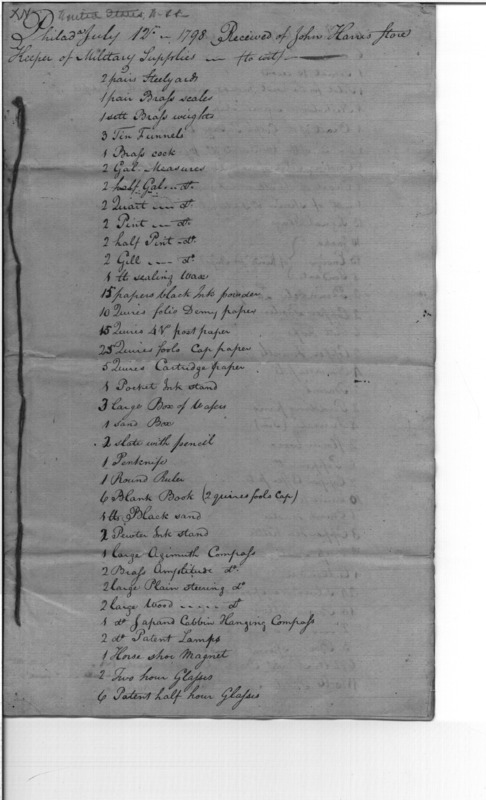 United States,
Philada. July 12th — 1798. Received of John Harris Store
Keeper of Military Supplies — (to wit)
2 pairs Steelyards
1 pair Brass scales
1 sett Brass weights
3 Tin Funnels
1 Brass cock
2 Gal. Measures
2 half Gal. — do.
2 Quart — do.
2 Pint — do.
2 half Pint do.
2 Gill — do.
1 lb sealing Wax
15 papers black Ink powder
10 Quires folio Demy paper
15 Quires 4to post paper
25 Quires fools Cap paper
5 Quires Cartridge paper
1 Pocket Ink stand
3 large Box of Wafers
1 Sand Box
2 slate with pencil
1 Penknife
1 Round Ruler
6 Blank Book (2 quires fools Cap)
1 lb Black sand
2 Pewter Ink stand
1 large Azimuth Compass
2 Brass Amplitude do.
2 large Plain steering do
2 large Wood - - - - do
1 do Japand Cabbin Hanging Compass
2 do Patent Lamps
1 Horse shoe Magnet
2 Two hour Glasses
6 Patent half hour Glasses